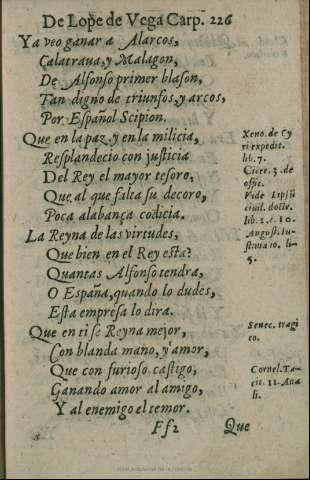 De Lope de Vega Carp. 226
Ya veo ganar a Alarcos,
Calatraua, y Malagon,
De Alfonso primer blason,
Tan digno de triunfos, y arcos,
Por Español Scipion.
Que en la paz y en la milicia,
Resplandecio con justicia
Del Rey el mayor tesoro,
Que al que falta su decoro,
Poca alabança codicia.
La Reyna de las virtudes,
Que bien en el Rey esta?
Quantas Alfonso tendra,
O España, quando lo dudes,
Esta empresa lo dira.
Que en ti se Reyna mejor,
Con blanda mano, y amor,
Que con furioso castigo,
Ganando amor al amigo,
Y al enemigo el temor.
Ff2 Que
Xeno. de Cy
ri expedit.
lib. 7.
Cicer. 3. de
offic.
Vide Lipsiũ
ciuil. doctr.
lib. 2. c. 10.
August. Iu-
stinia 10. li-
5.
Senec. tragi
co.
Cornel. Ta-
cit. 11. Ana
li.